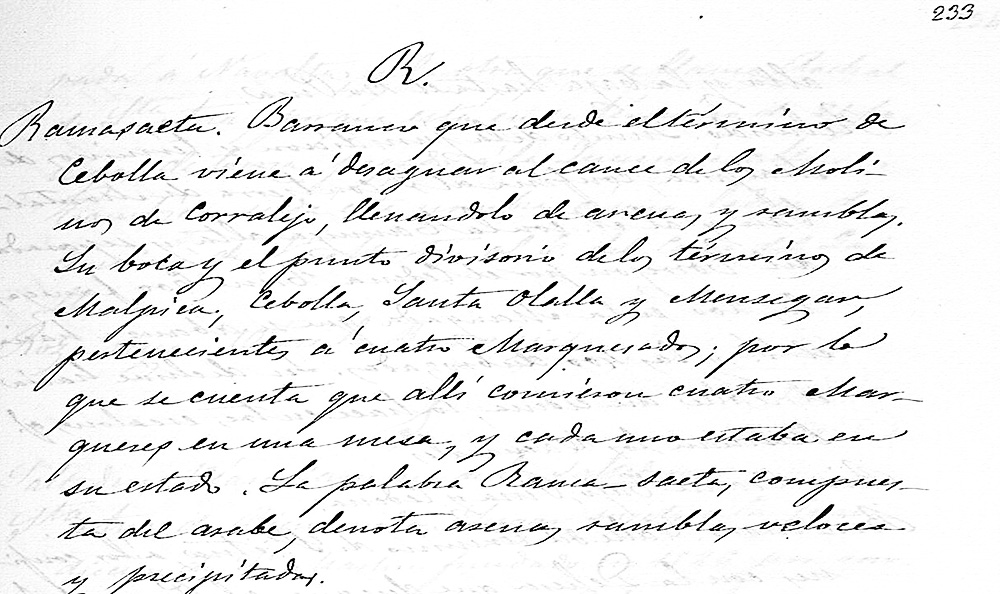 233
R.
Ramasaeta. Barranco que desde el término de
Cebolla viene á desaguar al cauce de los Moli-
nos de Corralejo, llenandolo de arenas y ramblas.
Su boca y el punto divisorio de los términos de
Malpica, Cebolla, Santa Olalla y Mensegar,
pertenecientes á cuatro Marquesados; por lo
que se cuenta que allí comieron cuatro Mar-
queses en una mesa, y cada uno estaba en
su estado. La palabra Rama-saeta, compues-
ta del arabe, denota arenas, ramblas veloces
y precipitadas.